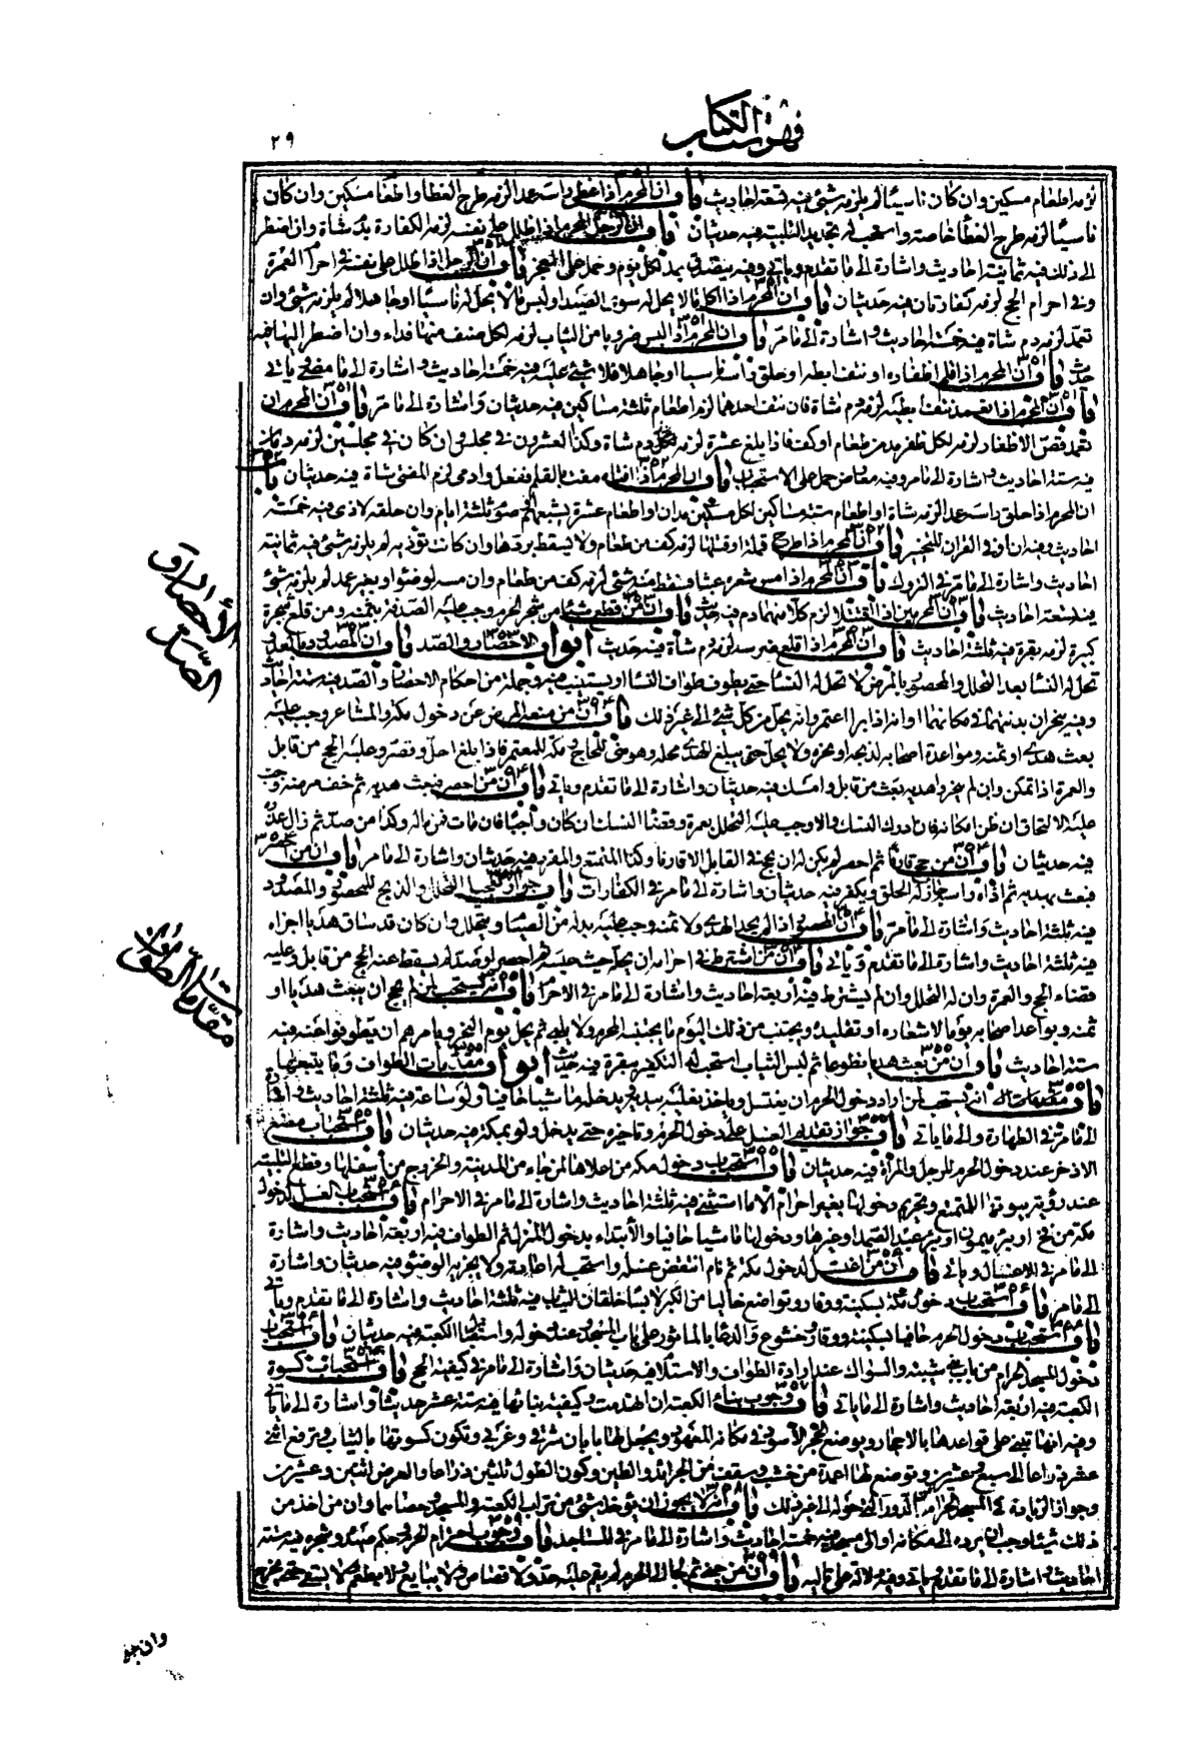 فهرست الكتاب
٢٩
لزمه اطعام مسكين وان كان ناسيا لم يلزمه شئ فيه تسعة احاديث باب ان المحرم اذا غطى راسه عمدا لزمه طرح الغطا واطعام مسكين وان كان
ناسيا لزمه طرح الغطاء خاصة واستحب له تجديد التلبية فيه حديثان باب ان الرجل المحرم اذا ظلل على نفسه لزمه الكفارة بدم شاة وان اضطر
الى ذلك فيه ثمانية احاديث واشارة الى ما تقدم وياتي وفيه يتصدق بمد لكل يوم وحمل على العجز باب ان الرجل اذا ظلل على نفسه في احرام العمرة
وفى احرام الحج لزمه كفارتان فيه حديثان باب ان المحرم اذا اكل ما لا يحل له سوى الصيد او لبس ما لا يحل له ناسيا او جاهلا لم يلزمه شئ وان
تعمد لزمه دم شاة فيه خمسة احاديث واشارة الى ما مر باب ان المحرم اذا لبس ضروبا من الثياب لزمه لكل صنف منها فداء وان اضطر اليها فيه
حديث باب ان المحرم اذا قلم اظفاره او نتف ابطه او حلق راسه ناسيا او جاهلا فلا شئ عليه فيه خمسة احاديث واشارة الى ما مضى وياتي
باب ان المحرم اذا تعمد نتف ابطيه لزمه دم شاة فان نتف احدهما لزم اطعام ثلثة مساكين فيه حديثان واشارة الى ما مر باب ان المحرم ان
تعمد قص الاظفار لزمه لكل ظفر مد من طعام او كف فاذا بلغ عشرة لزمه دم شاة وكذا العشرون في مجلس وان كان في مجلسين لزمه دمان
فيه ستة احاديث واشارة الى ما مر وفيه معارض حمل على الاستحباب باب ان المحرم اذا افتاه مفت بالقلم ففعل وادمى لزم المفتي شاة فيه حديثان باب
ان المحرم اذا حلق راسه عمدا لزمه شاة او اطعام ستة مساكين لكل مسكين مدان او اطعام عشرة يشبعهم او صوم ثلثة ايام وان حلقه لاذى فيه خمسة
احاديث وفيه ان او في القران للتخيير باب ان المحرم اذا طرح قملة او قتلها لزمه كف من طعام ولا يسقط بردها وان كانت تؤذيه لم يلزمه شئ فيه ثمانية
احاديث واشارة الى ما مر في التروك باب ان المحرم اذا مس شعره عبثا فسقط منه شئ لزمه كف من طعام وان مسه لوضوء او بغير عمد لم يلزمه شئ
فيه تسعة احاديث باب ان المحرمين اذا اقتتلا لزم كلا منهما دم فيه حديث باب ان من قطع شيئا من شجر الحرم وجب عليه الصدقة بثمنه ومن قلع شجرة
كبيرة لزمه بقرة فيه ثلثة احاديث باب ان المحرم اذا قلع ضرسه لزمه دم شاة فيه حديث ابواب الاحصار والصد باب ان المصدود
تحل له النسا بعد التحلل والمحصور بالمرض لا تحل له النسا حتى يطوف طواف النسا او يستنيب فيه وجملة من احكام الاحصار والصد فيه ستة احاديث
وفيه ينحران بدنتهما في مكانهما او انه اذا برا اعتمر وانه يحل من كل شئ الى غير ذلك باب ان من منعه المرض عن دخول مكة والمشاعر وجب عليه
بعث هدى او ثمنه ومواعدة اصحابه لذبحه او نحره ولا يحل حتى يبلغ الهدى محله وهو منى للحاج ومكة للمعتمر فاذا بلغ احل وقصر وعليه الحج من قابل
والعمرة اذا تمكن وان لم ينحر واهديه بعث من قابل وامسك فيه حديثان واشارة الى ما تقدم وياتي باب ان من احصر فبعث هديه ثم خف مرضه وجب
عليه الالتحاق ان ظن امكانه فان ادرك النسك والا وجب عليه التحلل بعمرة وقضاء النسك ان كان واجبا فان مات فمن ماله وكذا من صد ثم زال عذره
فيه حديثان باب ان من حج قارنا ثم احصر لم يكن له ان يحج في القابل الا قارنا وكذا المتمتع والمفرد فيه حديثان واشارة الى ما مر باب ان من احصر
فبعث بهديه ثم اذاه راسه جاز له الحلق ويكفر فيه حديثان واشارة الى ما مر في الكفارات باب جواز تعجيل التحلل والذبح للمحصور والمصدود
فيه ثلثة احاديث واشارة الى ما مر باب ان المحصور اذا لم يجد الهدى ولا ثمنه وجب عليه بدله من الصيام ويتحلل وان كان قد ساق هديا اجزاه
فيه ثلثة احاديث واشارة الى ما تقدم وياتي باب ان من اشترط في احرامه ان يحله حيث حبسه ثم احصر او صد لم يسقط عنه الحج من قابل وعليه
قضاء الحج والعمرة وان له التحلل وان لم يشترط فيه اربعة احاديث واشارة الى ما مر في الاحرام باب انه يستحب لمن لم يحج ان يبعث هديا او
ثمنه ويواعد اصحابه يوما لاشعاره او تقليده ويجتنب من ذلك اليوم ما يجتنبه المحرم ولا يلبي ثم يحل يوم النحر ويامرهم ان يطوفوا عنه فيه
ستة احاديث باب ان من بعث هديا تطوعا ثم لبس الثياب استحب له التكفير ببقرة فيه حديث ابواب مقدمات الطواف وما يتبعها
باب انه يستحب لمن اراد دخول الحرم ان يغتسل وياخذ نعليه بيديه ثم يدخله ماشيا حافيا ولو ساعة فيه ثلثة احاديث واشارة
الى ما مر في الطهارة والى ما ياتي باب جواز تقديم الغسل على دخول الحرم وتاخيره حتى يدخل ولو بمكة فيه حديثان باب استحباب مضغ
الاذخر عند دخول الحرم للرجل والمراة فيه حديثان باب استحباب دخول مكة من اعلاها لمن جاء من المدينة والخروج من اسفلها وقطع التلبية
عند رؤية بيوتها للمتمتع وتحريم دخولها بغير احرام الا ما استثني فيه ثلثة احاديث واشارة الى ما مر في الاحرام باب استحباب الغسل لدخول
مكة من فخ او بئر ميمون او بئر عبد الصمد او غيرها ودخولها ماشيا حافيا والابتداء بدخول المنزل ثم الطواف فيه اربعة احاديث واشارة
الى ما مر في الاغسال وياتي باب ان من اغتسل لدخول مكة ثم نام انتقض غسله واستحب له اعادته ولا يجزيه الوضوء فيه حديثان واشارة
الى ما مر باب استحباب دخول مكة بسكينة ووقار وتواضع خاليا من الكبر لابسا خلقان الثياب فيه ثلثة احاديث واشارة الى ما تقدم وياتي
باب استحباب دخول الحرم حافيا بسكينة ووقار وخشوع والدعاء بالماثور على باب المسجد وعند دخوله واستقبال الكعبة فيه حديثان باب استحباب
دخول المسجد الحرام من باب بني شيبة والسواك عند ارادة الطواف والاستلام فيه حديثان واشارة الى ما مر في كيفية الحج باب استحباب كسوة
الكعبة فيه اربعة احاديث واشارة الى ما ياتي باب وجوب بناء الكعبة ان انهدمت وكيفية بنائها فيه ستة عشر حديثا واشارة الى ما ياتي
وفيه انها تبنى على قواعدها بالاحجار ويوضع الحجر الاسود في مكانه المعهود ويجعل لها بابان شرقي وغربي وتكون كسوتها بالثياب وترفع اثني
عشر ذراعا الى سبع وعشرين وتوضع لها اعمدة من خشب ويسقف من الجرائد والطين وكون الطول ثلثين ذراعا والعرض اثنين وعشرين
وجواز الزيادة في المسجد الحرام الى غير ذلك باب انه لا يجوز ان يؤخذ شئ من تراب الكعبة والمسجد وحصاهما وان من اخذ من
ذلك شيئا وجب ان يرده الى مكانه او الى مسجد فيه خمسة احاديث واشارة الى ما مر في المساجد باب وجوب احترام الحرم وحكم صيده وشجره فيه ستة
احاديث واشارة الى ما تقدم وياتي وفيه دلالة على تاليه باب ان من جنى ثم لجا الى الحرم لم يقم عليه حد ولا قصاص ولا يبايع ولا يطعم ولا يسقى حتى يخرج
الأحصار و
الصد
مقدمات الطواف
وان جنى